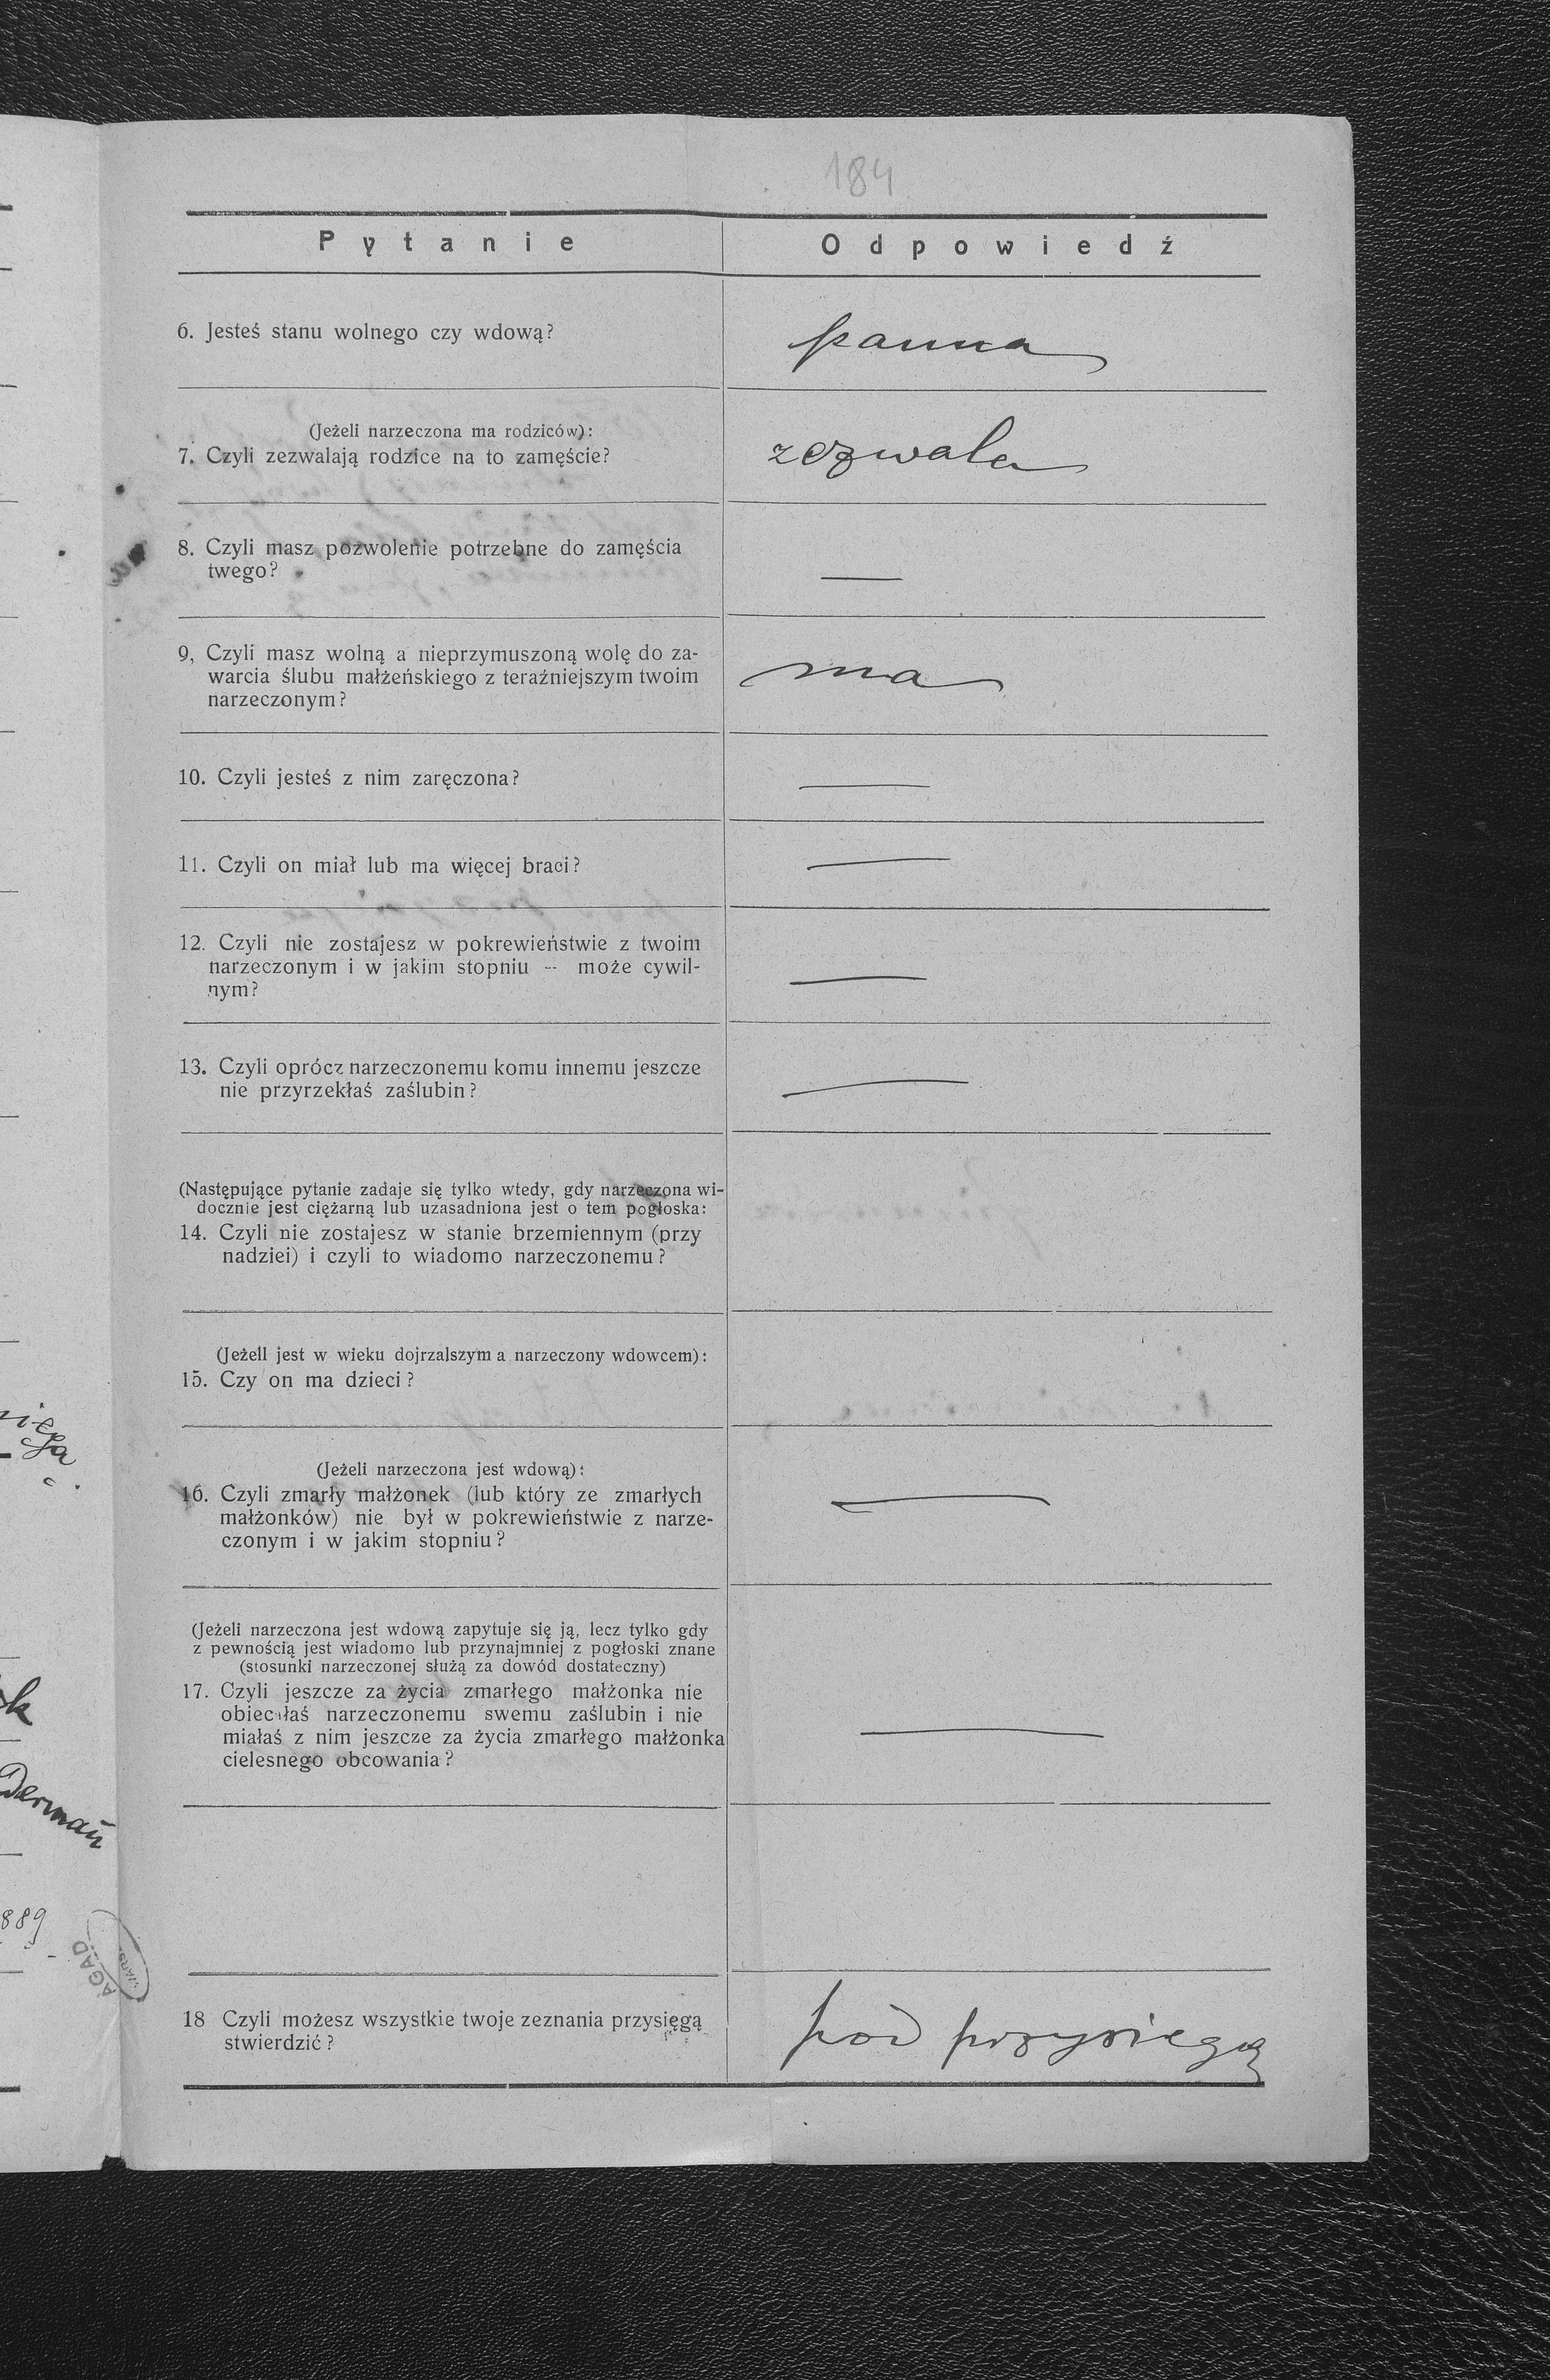 184
Pytanie Odpowiedź
6. Jesteś stanu wolnego czy wdową? panna
(Jeżeli narzeczona ma rodziców):
7. Czyli zezwalają rodzice na to zamęście? zezwala
8. Czyli masz pozwolenie potrzebne do zamęścia
twego? —
9, Czyli masz wolną a nieprzymuszoną wolę do za-
warcia ślubu małżeńskiego z teraźniejszym twoim
narzeczonym? ma
10. Czyli jesteś z nim zaręczona? —
11. Czyli on miał lub ma więcej braci? —
12. Czyli nie zostajesz w pokrewieństwie z twoim
narzeczonym i w jakim stopniu -- może cywil-
nym? —
13. Czyli oprócz narzeczonemu komu innemu jeszcze
nie przyrzekłaś zaślubin? —
(Następujące pytanie zadaje się tylko wtedy, gdy narzeczona wi-
docznie jest ciężarną lub uzasadniona jest o tem pogłoska:
14. Czyli nie zostajesz w stanie brzemiennym (przy
nadziei) i czyli to wiadomo narzeczonemu?
(Jeżeli jest w wieku dojrzalszym a narzeczony wdowcem):
15. Czy on ma dzieci?
(Jeżeli narzeczona jest wdową):
16. Czyli zmarły małżonek (lub który ze zmarłych
małżonków) nie był w pokrewieństwie z narze-
czonym i w jakim stopniu? —
(Jeżeli narzeczona jest wdową zapytuje się ją, lecz tylko gdy
z pewnością jest wiadomo lub przynajmniej z pogłoski znane
(stosunki narzeczonej służą za dowód dostateczny)
17. Czyli jeszcze za życia zmarłego małżonka nie
obiecałaś narzeczonemu swemu zaślubin i nie
miałaś z nim jeszcze za życia zmarłego małżonka
cielesnego obcowania? —
18 Czyli możesz wszystkie twoje zeznania przysięgą
stwierdzić? pod przysięgą
Dermań
889
AGAD